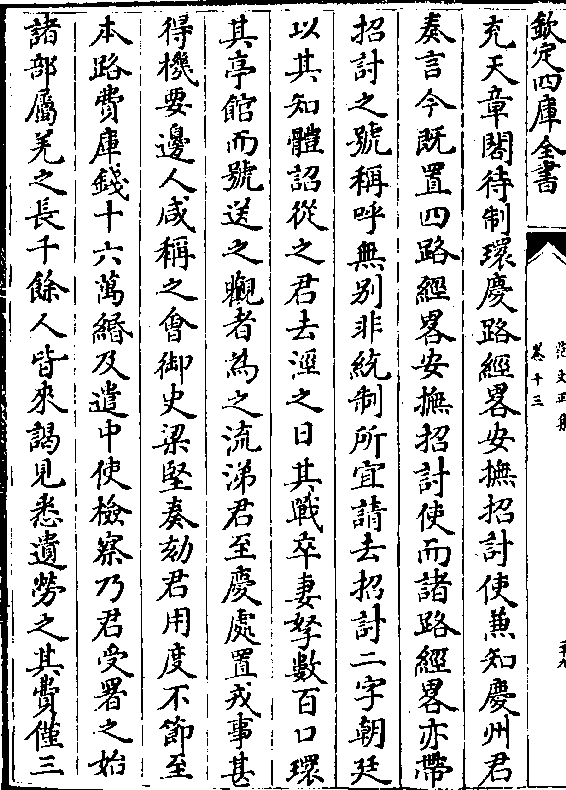 欽定四庫全書
范文正集
卷十三
充天章閣待制環慶路經畧安撫招討使兼知慶州君
奏言今既置四路經畧安撫招討使而諸路經畧亦帶
招討之號稱呼無别非統制所宜請去招討二字朝廷
以其知體詔從之君去涇之日其戰卒妻孥數百口環
其亭館而號送之觀者為之流涕君至慶處置戎事甚
得機要邊人咸稱之㑹御史梁堅奏劾君用度不節至
本路費庫錢十六萬緡及遣中使檢察乃君受署之始
諸部屬羌之長千餘人皆來謁見悉遺勞之其費僅三